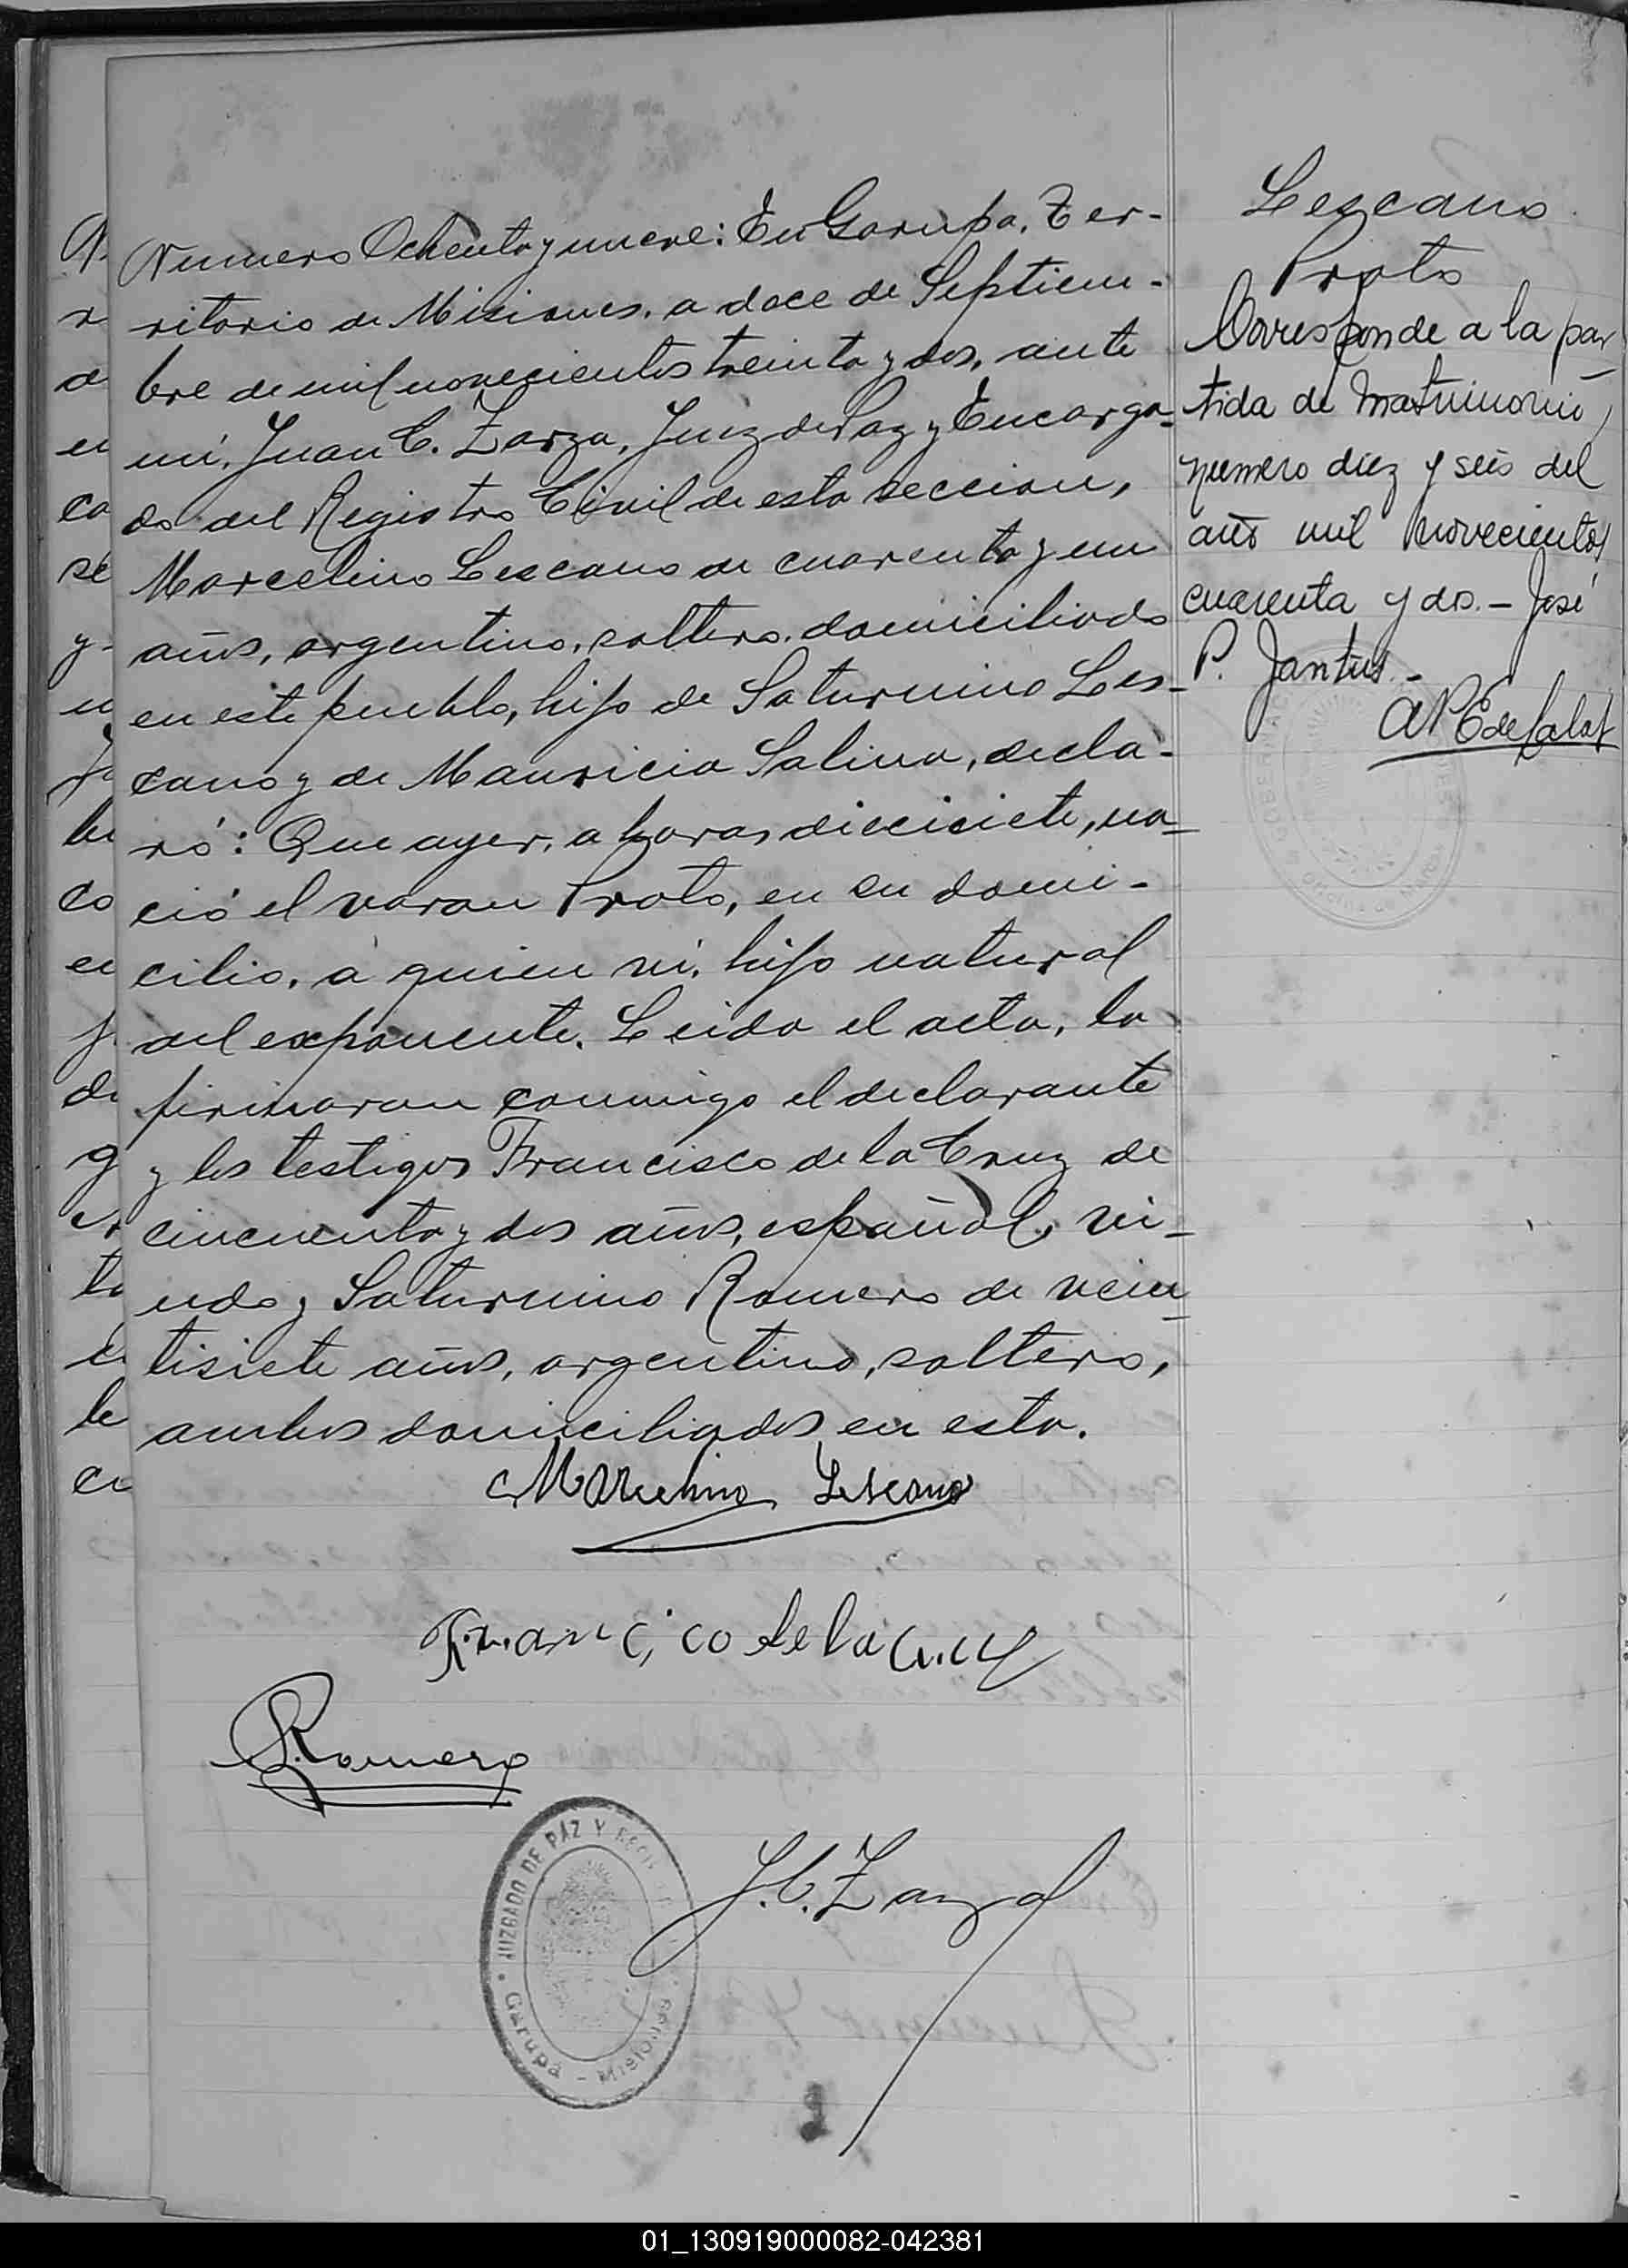 Numero Ochenta y nueve: En Garupa, Ter-
ritorio de Misiones, a doce de Septiem-
bre de mil novecientos treinta y dos, ante
mí, Juan C. Zarza, Juez de Paz y Encarga-
do del Registro Civil de esta seccion,
Marcelino Lescano de cuarenta y un
años, argentino, soltero, domiciliado
en este pueblo, hijo de Saturnino Les-
cano y de Mauricia Salina, decla-
ró: Que ayer, a horas dieciciete, na-
ció el varon Proto, en su domi-
cilio, a quien ví, hijo natural
del exponente. Leida el acta, la
firmaron conmigo el declarante
y los testigos Francisco de la Cruz de
cincuenta y dos años, español, vi-
udo y Saturnino Romero de vein-
tisiete años, argentino, soltero,
ambos domiciliados en esta.
Marcelino Lescano
Francico de la Cruz
S. Romero
J. C. Zarza
JUZGADO DE PAZ Y
Garupá - Misiones
Lescano
Proto
Corresponde a la par-
tida de matrimonio
numero diez y seis del
año mil novecientos
cuarenta y dos. - José
P. Jantus. -
01_130919000082-042381